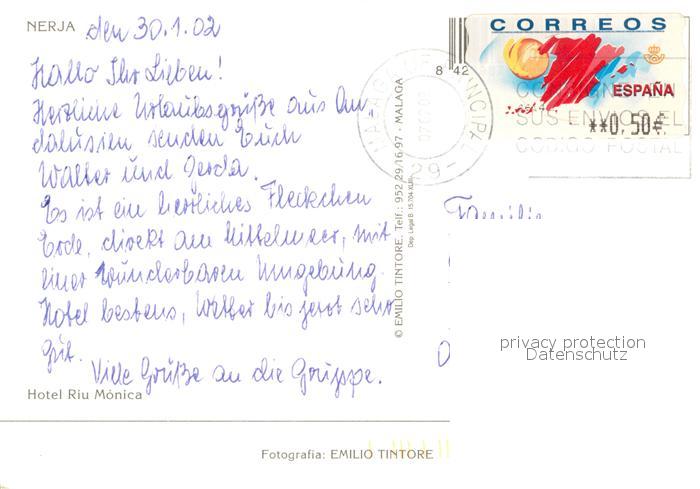 NERJA den 30.1.02
Hallo Ihr Lieben!
Herzliche Urlaubsgrüße aus An-
dalusien senden Euch
Walter und Gerda.
Es ist ein herrliches Fleckchen
Erde, direkt am Mittelmeer, mit
einer wunderbaren Umgebung.
Hotel bestens, Wetter bis jetzt sehr
gut.
Viele Grüße an die Gruppe.
Hotel Riu Mónica
Fotografía: EMILIO TINTORE
© EMILIO TINTORE. Telf.: 952 29 16 97 - MALAGA
Dep. Legal B. 15.704-XLIII
CORREOS
8 42
ESPAÑA
**0,50€
MALAGA PRINCIPAL
-29-
SUS ENVIOS EL
CODIGO POSTAL
Familie
privacy protection
Datenschutz